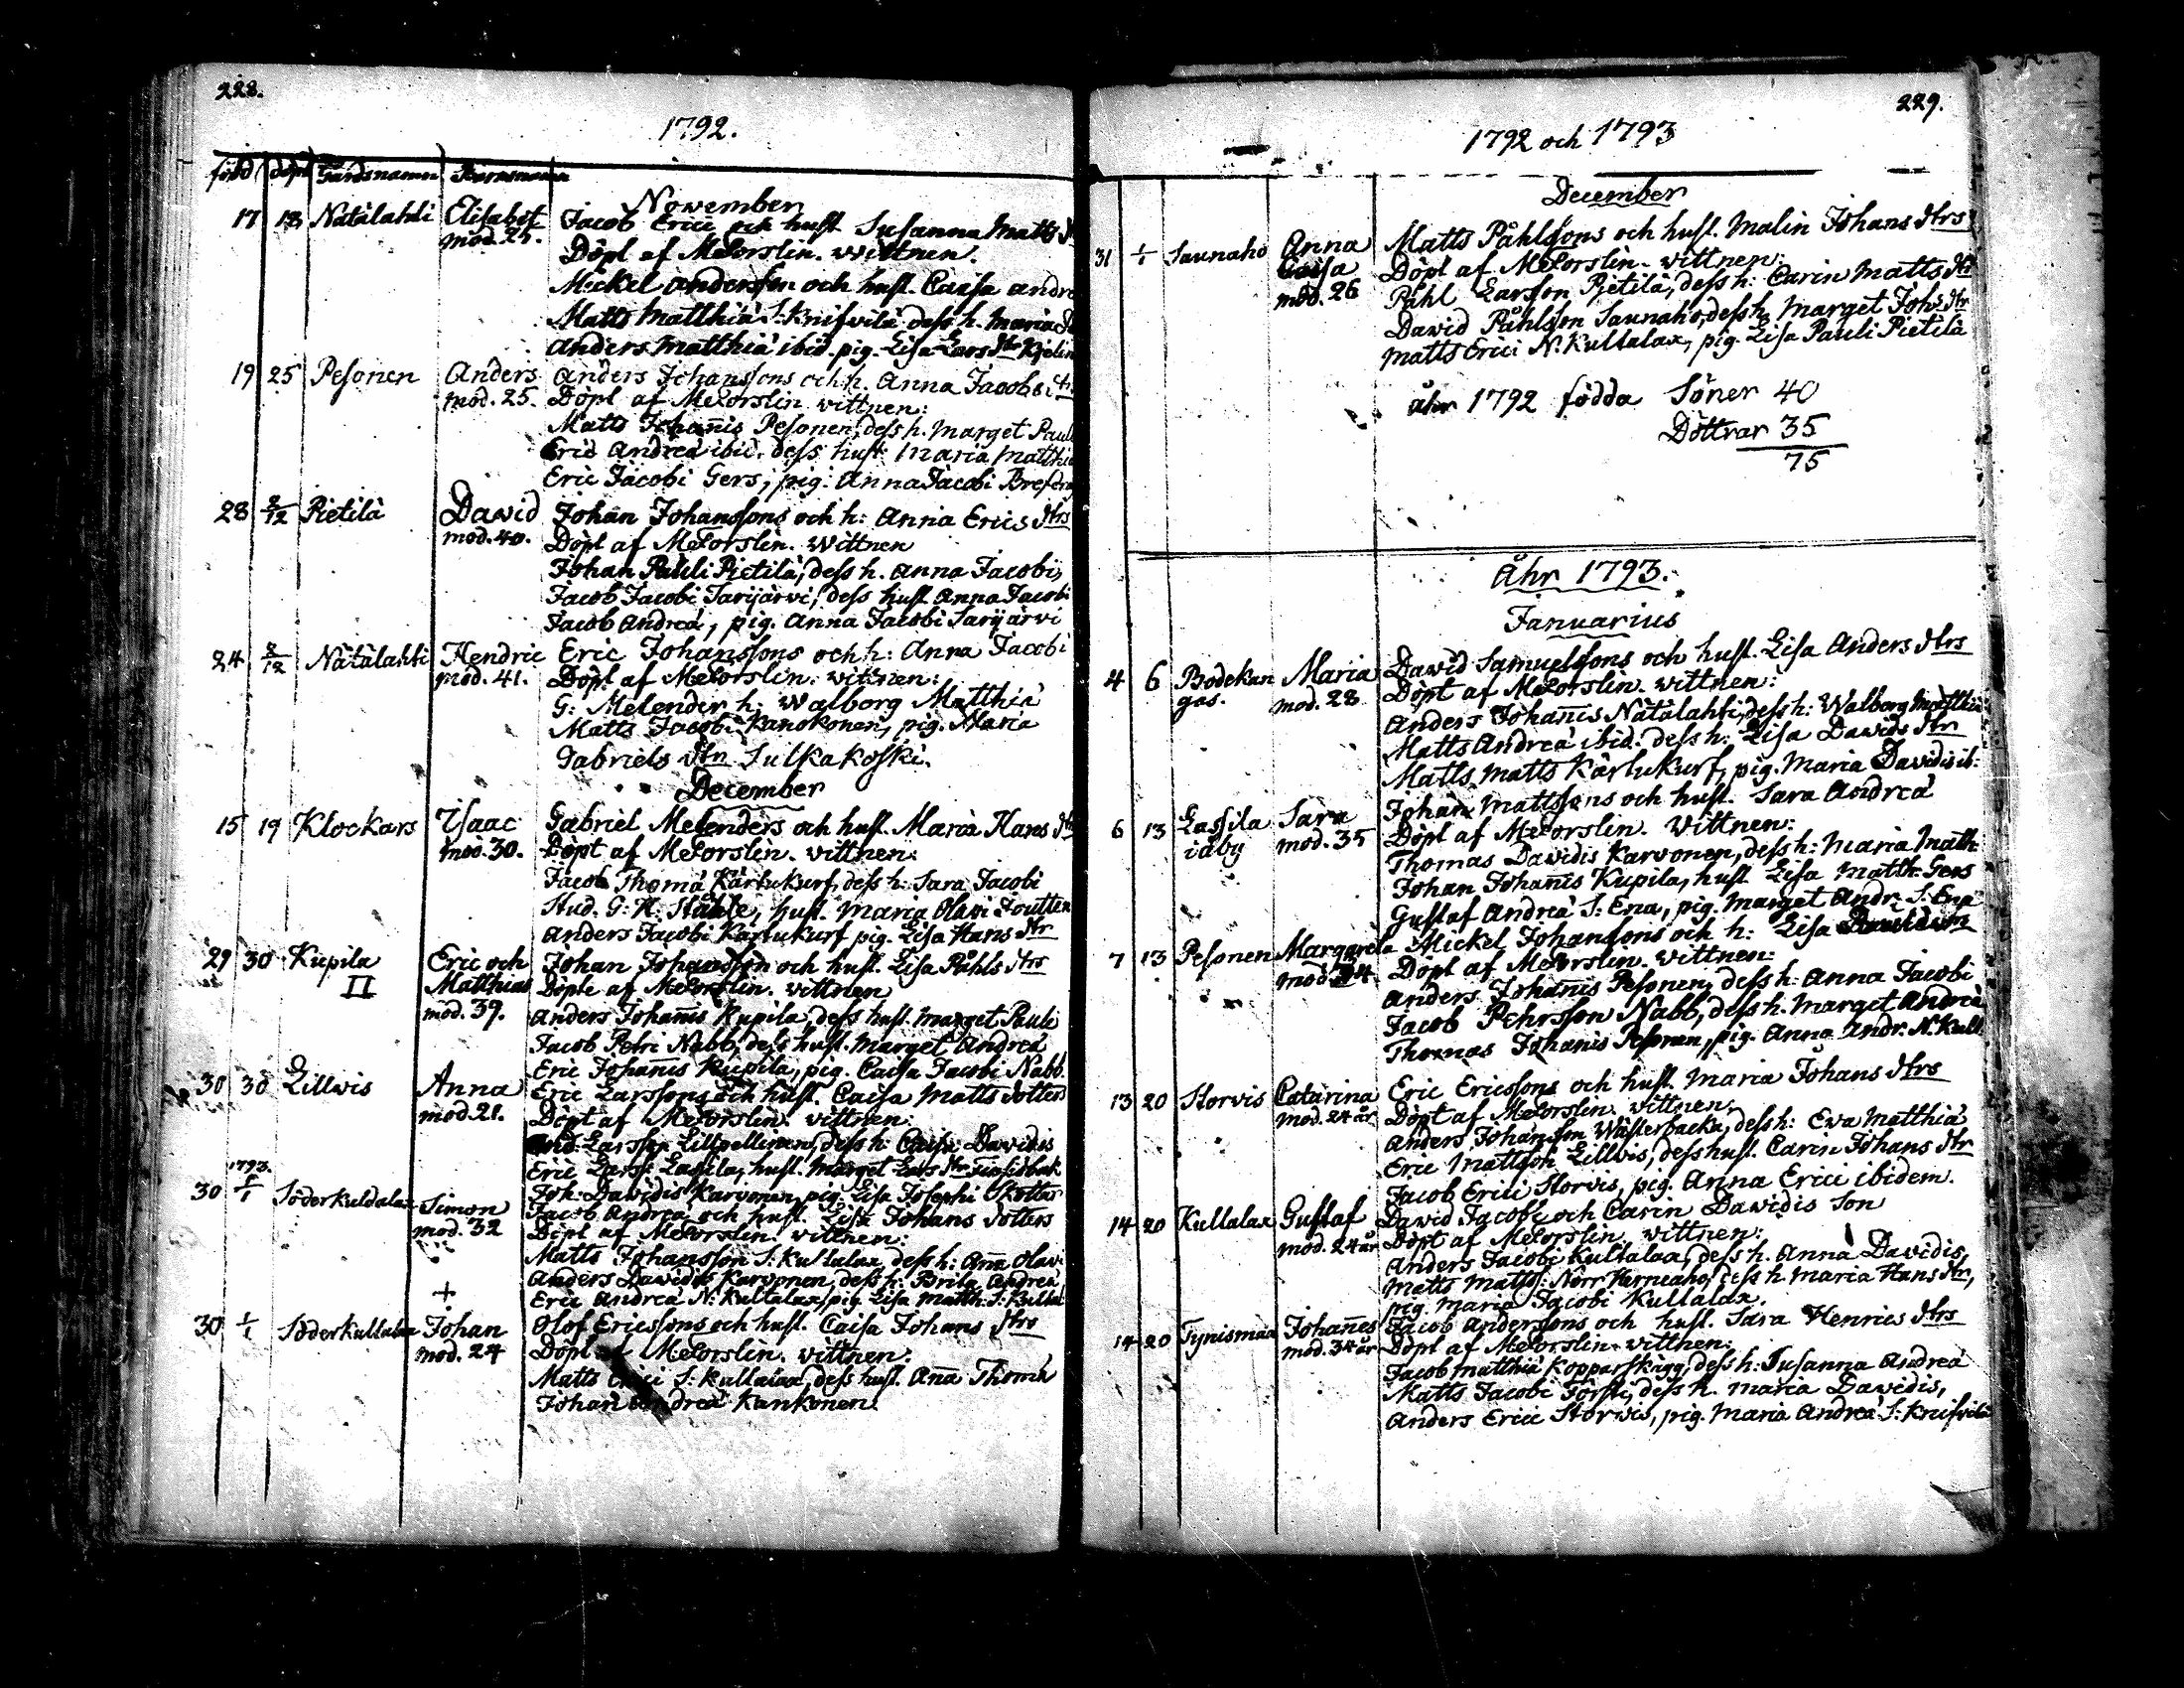 228.
1792.
född döpt Gårdsnamn Barnsnamn
November
17 18 Nätälahti Elisabet mod. 25. Jacob Erici och hust. Susanna Matts
Döpt af MeForslin. wittnen.
Mickel Andersson och hust. Caisa
Matts Matthiä S: Knifvilä dess h. Maria
Anders Matthiä ibid. pig. Lisa Lars dtr
19 25 Pesonen Anders mod. 25. Anders Johanssons och h. Anna Jacobs
Döpt af MeForslin wittnen:
Matts Johañis Pesonen, dess h. Marget
Eric Andreä ibid. dess hust. Maria
Eric Jacobi Gers, pig. Anna Jacobi
28 2/12 Pietilä David mod. 40. Johan Johanssons och h: Anna Erics dtrs
Döpt af MeForslin. Wittnen
Johan Pauli Pietilä, dess h. Anna Jacobi,
Jacob Jacobi Sarijärvi, dess hust Anna Jacobi
Jacob Andreä, pig. Anna Jacobi Sarijärvi
24 2/12 Nätälahti Hendric mod. 41. Eric Johanssons och h: Anna Jacobi
Döpt af MeForslin. wittnen:
G: Melender h: Walborg Matthiä
Matts Jacobi Kanokonen, pig. Maria
Gabriels dtr Sulkakoski.
December
15 19 Klockars Isaac mod. 30. Gabriel Melenders och hust. Maria Hans
Döpt af MeForslin. wittnen:
Jacob Thomä Kärhukurf, dess h: Sara Jacobi
Stud. G: H: Ståhle, hust. Maria Olavi
Anders Jacobi Kärhukurf pig. Lisa Hans dtr
29 30 Kupila II Eric och Matthias mod. 39. Johan Johansson och hust. Lisa Påhls dtrs
Döpte af MeForslin. wittnen
Anders Johañis Kupila, dess hust. Marget Pauli
Jacob Petri Nabb, dess hust. Marget Andreä
Eric Johañis Kupila, pig. Caisa Jacobi Nabb.
30 30 Lillvis Anna mod. 21. Eric Larssons och hust. Caisa Matts dotters
Döpt af MeForslin. wittnen:
Larsson dess h: Caisa Davidis
Eric Larss: Lassila, hust. Marget Lars dtr
Joh: Davidis Karvonen, pig. Lisa Josephi
30 1793. 1/1 Söderkuldalax Simon mod. 32 Jacob Andreä och hust. Lisa Johans dotters
Döpt af MeForslin. wittnen:
Matts Johansson S: Kullalax, dess h: Aña Olav
Anders Davidis Karvonen, dess h: Brita Andreä,
Eric Andreä N: Kullalax, pig. Lisa Matth: S: Kulla
+
30 1/1 Söderkullalax Johan mod. 24 Olof Ericssons och hust. Caisa Johans dtrs
Döpt af MeForslin. wittnen:
Matts Erici S: Kullalax, dess hust. Aña Thomä
Johan Andreä Kankonen.
229.
1792 och 1793
December
31 1/1 Saunaho Anna Caisa mod. 26 Matts Påhlssons och hust. Malin Johans dtrs
Döpt af MeForslin. wittnen:
Påhl Larsson Pietilä, dess h: Carin Matts dtr
Dawid Påhlsson Saunaho, dess h. Marget Joh:s dtr
Matts Erici N. Kullalax, pig. Lisa Pauli Pietilä
åhr 1792 födda Söner 40
Döttrar 35
75
Åhr 1793.
Januarius
4 6 Bodekangas. Maria mod. 28 Dawid Samuelssons och hust. Lisa Anders dtrs
Döpt af MeForslin. wittnen:
Anders Johañis Nätälahti, dess h: Walborg Matthiä
Matts Andreä ibid. dess h: Lisa Davids dtr
Matts Matts Kärhukurf, pig. Maria Davidis ib:
6 13 Lassila iåby Sara mod. 35 Johan Mattssons och hust. Sara Andreä
Döpt af MeForslin. Wittnen:
Thomas Davidis Karvonen, dess h: Maria Matth:
Johan Johañis Kupila, hust Lisa Matth: Gers
Gustaf Andreä S: Ena, pig. Marget Andr: S: Ena
7 13 Pesonen Margareta mod. 34 Mickel Johanssons och h: Lisa
Döpt af MeForslin. wittnen:
Anders Johañis Pesonen, dess h: Anna Jacobi
Jacob Pehrsson Nabb, dess h. Marget Andreä
Thomas Johañis Pesonen, pig. Anna Andr: N. Kull.
13 20 Storvis Catarina mod. 24 år Eric Ericssons och hust. Maria Johans dtrs
Döpt af MeForslin. wittnen:
Anders Johansson Wästerbacka, dess h: Eva Matthiä
Eric Mattsson Lillvis, dess hust. Carin Johans dtr
Jacob Erici Storvis, pig. Anna Erici ibidem.
14 20 Kullalax Gustaf mod. 24 år Dawid Jacobi och Carin Dawidis Son
Döpt af MeForslin. wittnen:
Anders Jacobi Kullalax, dess h. Anna Davidis,
Matts Matts: Norr Herneaho, dess h Maria Hans dtr,
pig. Maria Jacobi Kullalax.
14 20 Tynismaa Johañes mod. 34 år Jacob Anderssons och hust. Sara Henrics dtrs
Döpt af MeForslin. wittnen:
Jacob Matthiä Kopparskägg, dess h: Susanna Andreä
Matts Jacobi Förste, dess h. Maria Dawidis,
Anders Erici Storvis, pig. Maria Andreä S: Knifvilä